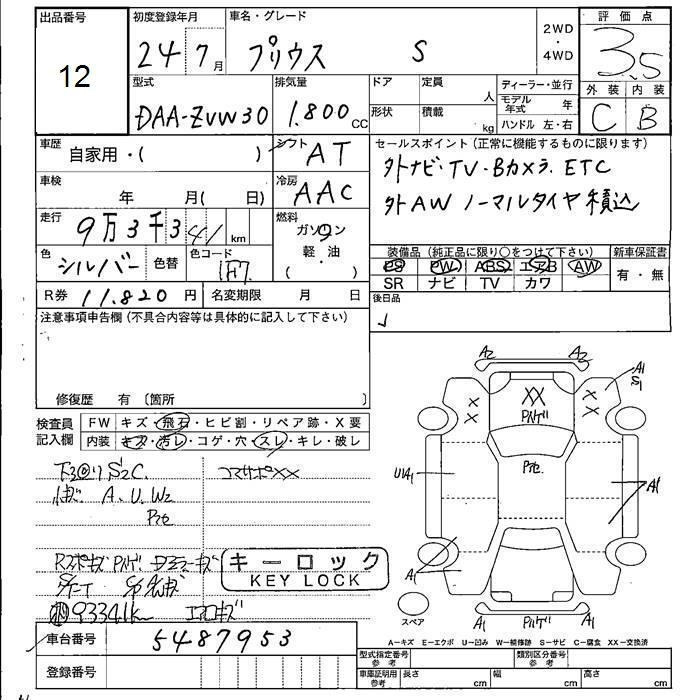 出品番号
12
初度登録年月
24 7月
車名・グレード
プリウス S
2WD
・
4WD
評価点
3.5
型式
DAA-ZVW30
排気量
1.800 CC
ドア
定員
人
形状
積載
kg
ディーラー・並行
モデル年式 年
ハンドル 左・右
外装 内装
C B
車歴
自家用・( )
シフト
AT
セールスポイント(正常に機能するものに限ります)
外ナビ・TV・Bカメラ. ETC
外AW ノーマルタイヤ積込
車検
年 月( 日)
冷房
AAC
走行
9万3千341 km
燃料
ガソリン
軽・油
( )
色
シルバー
色替
色コード
1F7
装備品(純正品に限り○をつけて下さい)
新車保証書
PS PW ABS エアB AW
SR ナビ TV カワ
有・無
R券 11.820 円
名変期限 月 日
後日品
注意事項申告欄(不具合内容等は具体的に記入して下さい)
修復歴 有 〔箇所 〕
検査員
記入欄
FW キズ・飛石・ヒビ割・リペア跡・X要
内装 キズ・汚レ・コゲ・穴・スレ・キレ・破レ
S2C.
A. U. W2
キーロック
KEY LOCK
93341k
エアロキズ
A2 A2
A1
S1
XX
X X
X X
UA1
A1
A1
A1 A1
スペア
A-キズ E-エクボ U-凹み W-補修跡 S-サビ C-腐食 XX-交換済
車台番号
5487953
登録番号
型式指定番号
参考
類別区分番号
参考
車庫証明用
参考
長さ cm
幅 cm
高さ cm